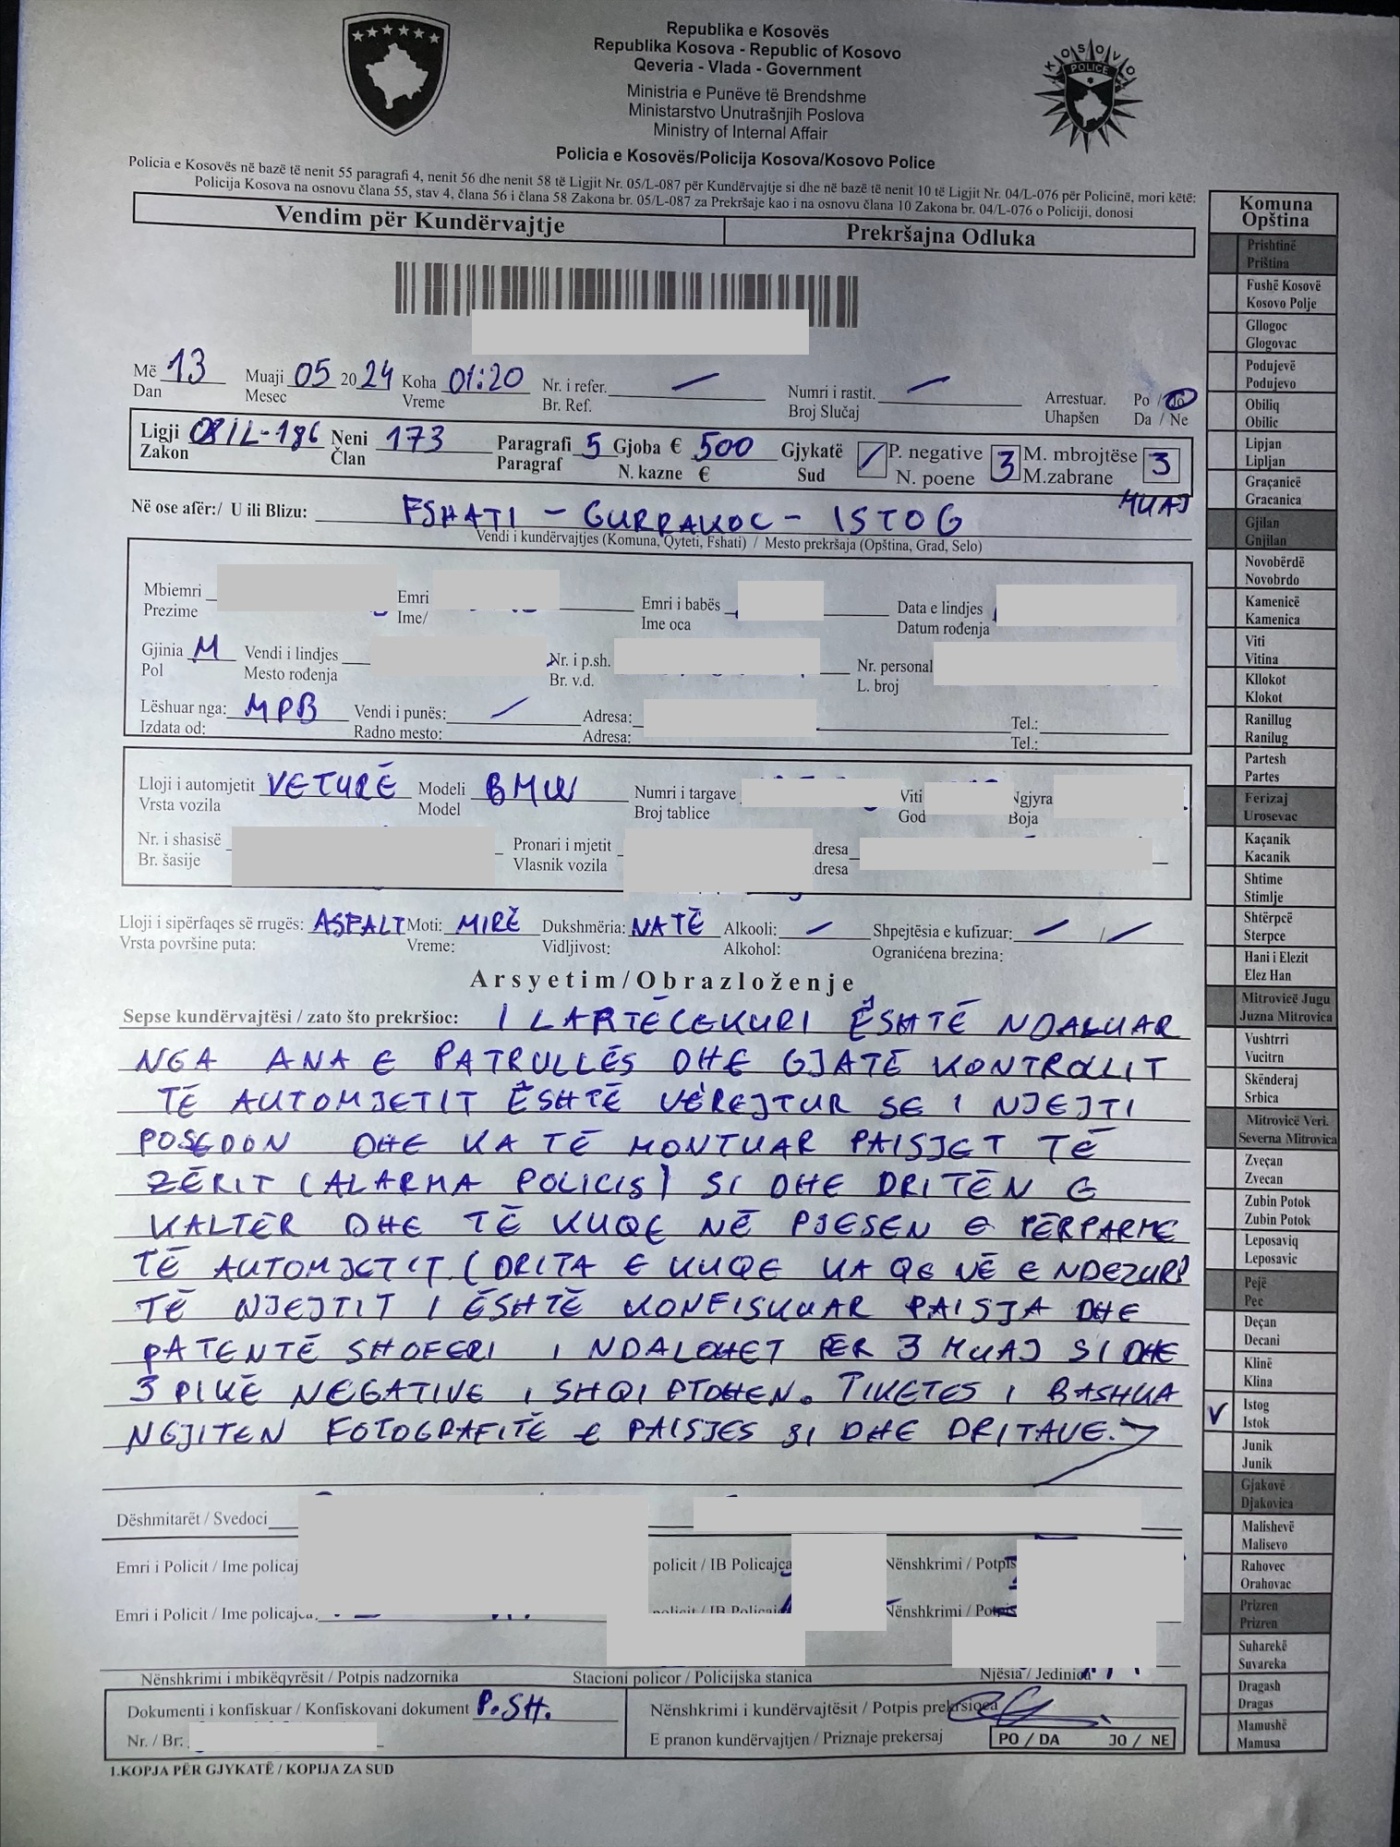 Republika e Kosovës
Republika Kosova - Republic of Kosovo
Qeveria - Vlada - Government
Ministria e Punëve të Brendshme
Ministarstvo Unutrašnjih Poslova
Ministry of Internal Affair
KOSOVO
POLICE
Policia e Kosovës/Policija Kosova/Kosovo Police
Policia e Kosovës në bazë të nenit 55 paragrafi 4, nenit 56 dhe nenit 58 të Ligjit Nr. 05/L-087 për Kundërvajtje si dhe në bazë të nenit 10 të Ligjit Nr. 04/L-076 për Policinë, mori këtë:
Policija Kosova na osnovu člana 55, stav 4, člana 56 i člana 58 Zakona br. 05/L-087 za Prekršaje kao i na osnovu člana 10 Zakona br. 04/L-076 o Policiji, donosi
Vendim për Kundërvajtje Prekršajna Odluka
Më 13 Muaji 05 2024 Koha 01:20 Nr. i refer. Numri i rastit. Arrestuar. Po / Jo
Dan Mesec Vreme Br. Ref. Broj Slučaj Uhapšen Da / Ne
Ligji 08/L-186 Neni 173 Paragrafi 5 Gjoba € 500 Gjykatë P. negative 3 M. mbrojtëse 3
Zakon Član Paragraf N. kazne € Sud N. poene M.zabrane MUAJ
Në ose afër:/ U ili Blizu: FSHATI - GURRAKOC - ISTOG
Vendi i kundërvajtjes (Komuna, Qyteti, Fshati) / Mesto prekršaja (Opština, Grad, Selo)
Mbiemri Emri Emri i babës Data e lindjes
Prezime Ime/ Ime oca Datum rođenja
Gjinia M Vendi i lindjes Nr. i p.sh. Nr. personal
Pol Mesto rođenja Br. v.d. L. broj
Lëshuar nga: MPB Vendi i punës: Adresa: Tel.:
Izdata od: Radno mesto: Adresa: Tel.:
Lloji i automjetit VETURË Modeli BMW Numri i targave Viti Ngjyra
Vrsta vozila Model Broj tablice God Boja
Nr. i shasisë Pronari i mjetit dresa
Br. šasije Vlasnik vozila dresa
Lloji i sipërfaqes së rrugës: ASFALT Moti: MIRË Dukshmëria: NATË Alkooli: Shpejtësia e kufizuar: /
Vrsta površine puta: Vreme: Vidljivost: Alkohol: Ograničena brezina:
Arsyetim/Obrazloženje
Sepse kundërvajtësi / zato što prekršioc: I LARTËCEKURI ËSHTË NDALUAR
NGA ANA E PATRULLËS DHE GJATË KONTROLLIT
TË AUTOMJETIT ËSHTË VËREJTUR SE I NJEJTI
POSEDON DHE KA TË MONTUAR PAISJET TË
ZËRIT (ALARMA POLICIS) SI DHE DRITËN E
KALTËR DHE TË KUQE NË PJESEN E PËRPARME
TË AUTOMJETIT (DRITA E KUQE KA QE NË E NDEZUR)
TË NJEJTIT I ËSHTË KONFISKUAR PAISJA DHE
PATENTË SHOFERI I NDALOHET PËR 3 MUAJ SI DHE
3 PIKË NEGATIVE I SHQIPTOHEN. TIKETES I BASHKA
NGJITEN FOTOGRAFITË E PAISJES SI DHE DRITAVE.
Dëshmitarët / Svedoci
Emri i Policit / Ime policaj policit / IB Policajca Nënshkrimi / Potpis
Emri i Policit / Ime policajca. policit / IB Policaj Nënshkrimi / Potpis
Nënshkrimi i mbikëqyrësit / Potpis nadzornika Stacioni policor / Policijska stanica Njësia / Jedinica
Dokumenti i konfiskuar / Konfiskovani dokument P.SH. Nënshkrimi i kundërvajtësit / Potpis prekrsioca
Nr. / Br: E pranon kundërvajtjen / Priznaje prekersaj PO / DA JO / NE
1.KOPJA PËR GJYKATË / KOPIJA ZA SUD
Komuna
Opština
Prishtinë
Priština
Fushë Kosovë
Kosovo Polje
Gllogoc
Glogovac
Podujevë
Podujevo
Obiliq
Obilic
Lipjan
Lipljan
Graçanicë
Gracanica
Gjilan
Gnjilan
Novobërdë
Novobrdo
Kamenicë
Kamenica
Viti
Vitina
Kllokot
Klokot
Ranillug
Ranilug
Partesh
Partes
Ferizaj
Urosevac
Kaçanik
Kacanik
Shtime
Stimlje
Shtërpcë
Sterpce
Hani i Elezit
Elez Han
Mitrovicë Jugu
Juzna Mitrovica
Vushtrri
Vucitrn
Skënderaj
Srbica
Mitrovicë Veri.
Severna Mitrovica
Zveçan
Zvecan
Zubin Potok
Zubin Potok
Leposaviq
Leposavic
Pejë
Pec
Deçan
Decani
Klinë
Klina
Istog
Istok
Junik
Junik
Gjakovë
Djakovica
Malishevë
Malisevo
Rahovec
Orahovac
Prizren
Prizren
Suharekë
Suvareka
Dragash
Dragas
Mamushë
Mamusa